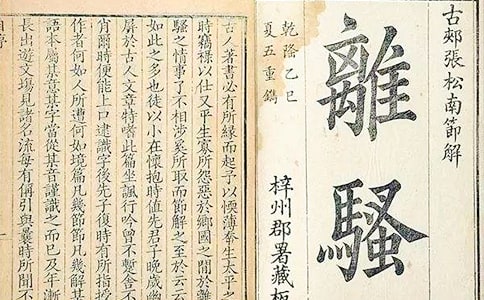 古郟張松南節解
離騷
乾隆乙巳
夏五重鐫
梓州郡署藏板
古人著書必有所緣而起予以愞薄奉生太平之
時竊祿以仕又平生寡所怨惡於鄉國之間於離
騷之情事了不相涉奚所取而節解之至於云云
如此之多也徒以小在懷抱時值先君子晚歲幽
屏於古人文章特嗜此篇坐諷行吟曾不蹔舍不
肖爾時便能上口逮識字後先子復時有所指授
作者何如人所遭何如境篇凡幾節節凡幾解某
語本屬某意某字當從某音謹識之而已及年漸
長出遊文塲見諸名流每有偁引與曩時所聞不